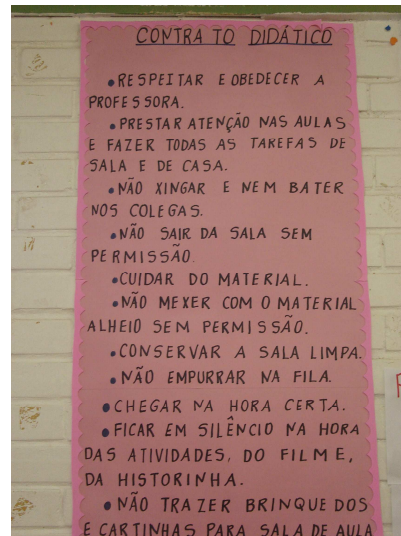 CONTRATO DIDÁTICO
• RESPEITAR E OBEDECER A
PROFESSORA.
• PRESTAR ATENÇÃO NAS AULAS
E FAZER TODAS AS TAREFAS DE
SALA E DE CASA.
• NÃO XINGAR E NEM BATER
NOS COLEGAS.
• NÃO SAIR DA SALA SEM
PERMISSÃO.
• CUIDAR DO MATERIAL.
• NÃO MEXER COM O MATERIAL
ALHEIO SEM PERMISSÃO.
• CONSERVAR A SALA LIMPA.
• NÃO EMPURRAR NA FILA.
• CHEGAR NA HORA CERTA.
• FICAR EM SILÊNCIO NA HORA
DAS ATIVIDADES, DO FILME,
DA HISTORINHA.
• NÃO TRAZER BRINQUEDOS
E CARTINHAS PARA SALA DE AULA